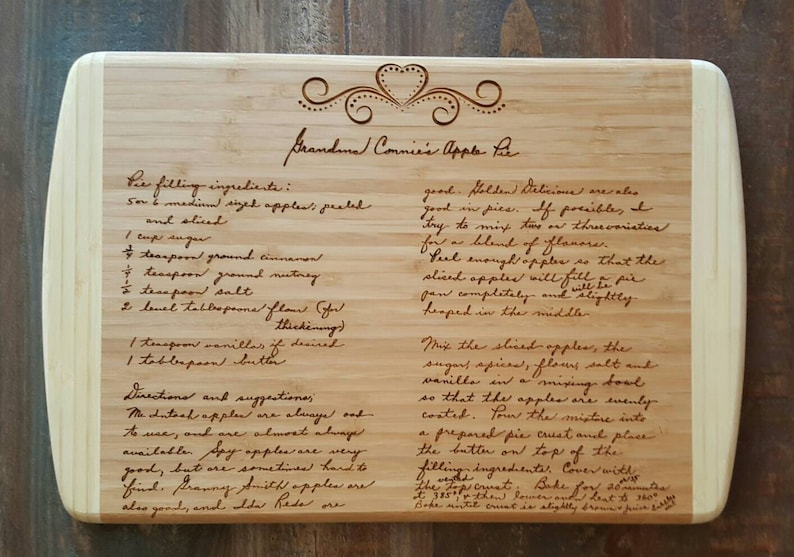 Grandma Connie's Apple Pie
Pie filling ingredients:
5 or 6 medium sized apples; peeled
and sliced
1 cup sugar
3/4 teaspoon ground cinnamon
1/4 teaspoon ground nutmeg
1/2 teaspoon salt
2 level tablespoons flour (for
thickening)
1 teaspoon vanilla, if desired
1 tablespoon butter
Directions and suggestions;
McIntosh apples are always ood
to use, and are almost always
available. Spy apples are very
good, but are sometimes hard to
find. Granny Smith apples are
also good, and Ida Reds are
good. Golden Delicious are also
good in pies. If possible, I
try to mix two or three varieties
for a blend of flavors.
Peel enough apples so that the
sliced apples will fill a pie
pan completely and will be slightly
heaped in the middle.
Mix the sliced apples, the
sugar, spices, flour, salt and
vanilla in a mixing bowl
so that the apples are evenly
coated. Pour the mixture into
a prepared pie crust and place
the butter on top of the
filling ingredients. Cover with
the vented top crust. Bake for 20 or 25 minutes
at 385°, & then lower oven heat to 360°
Bake until crust is slightly brown & juice bubbles
out